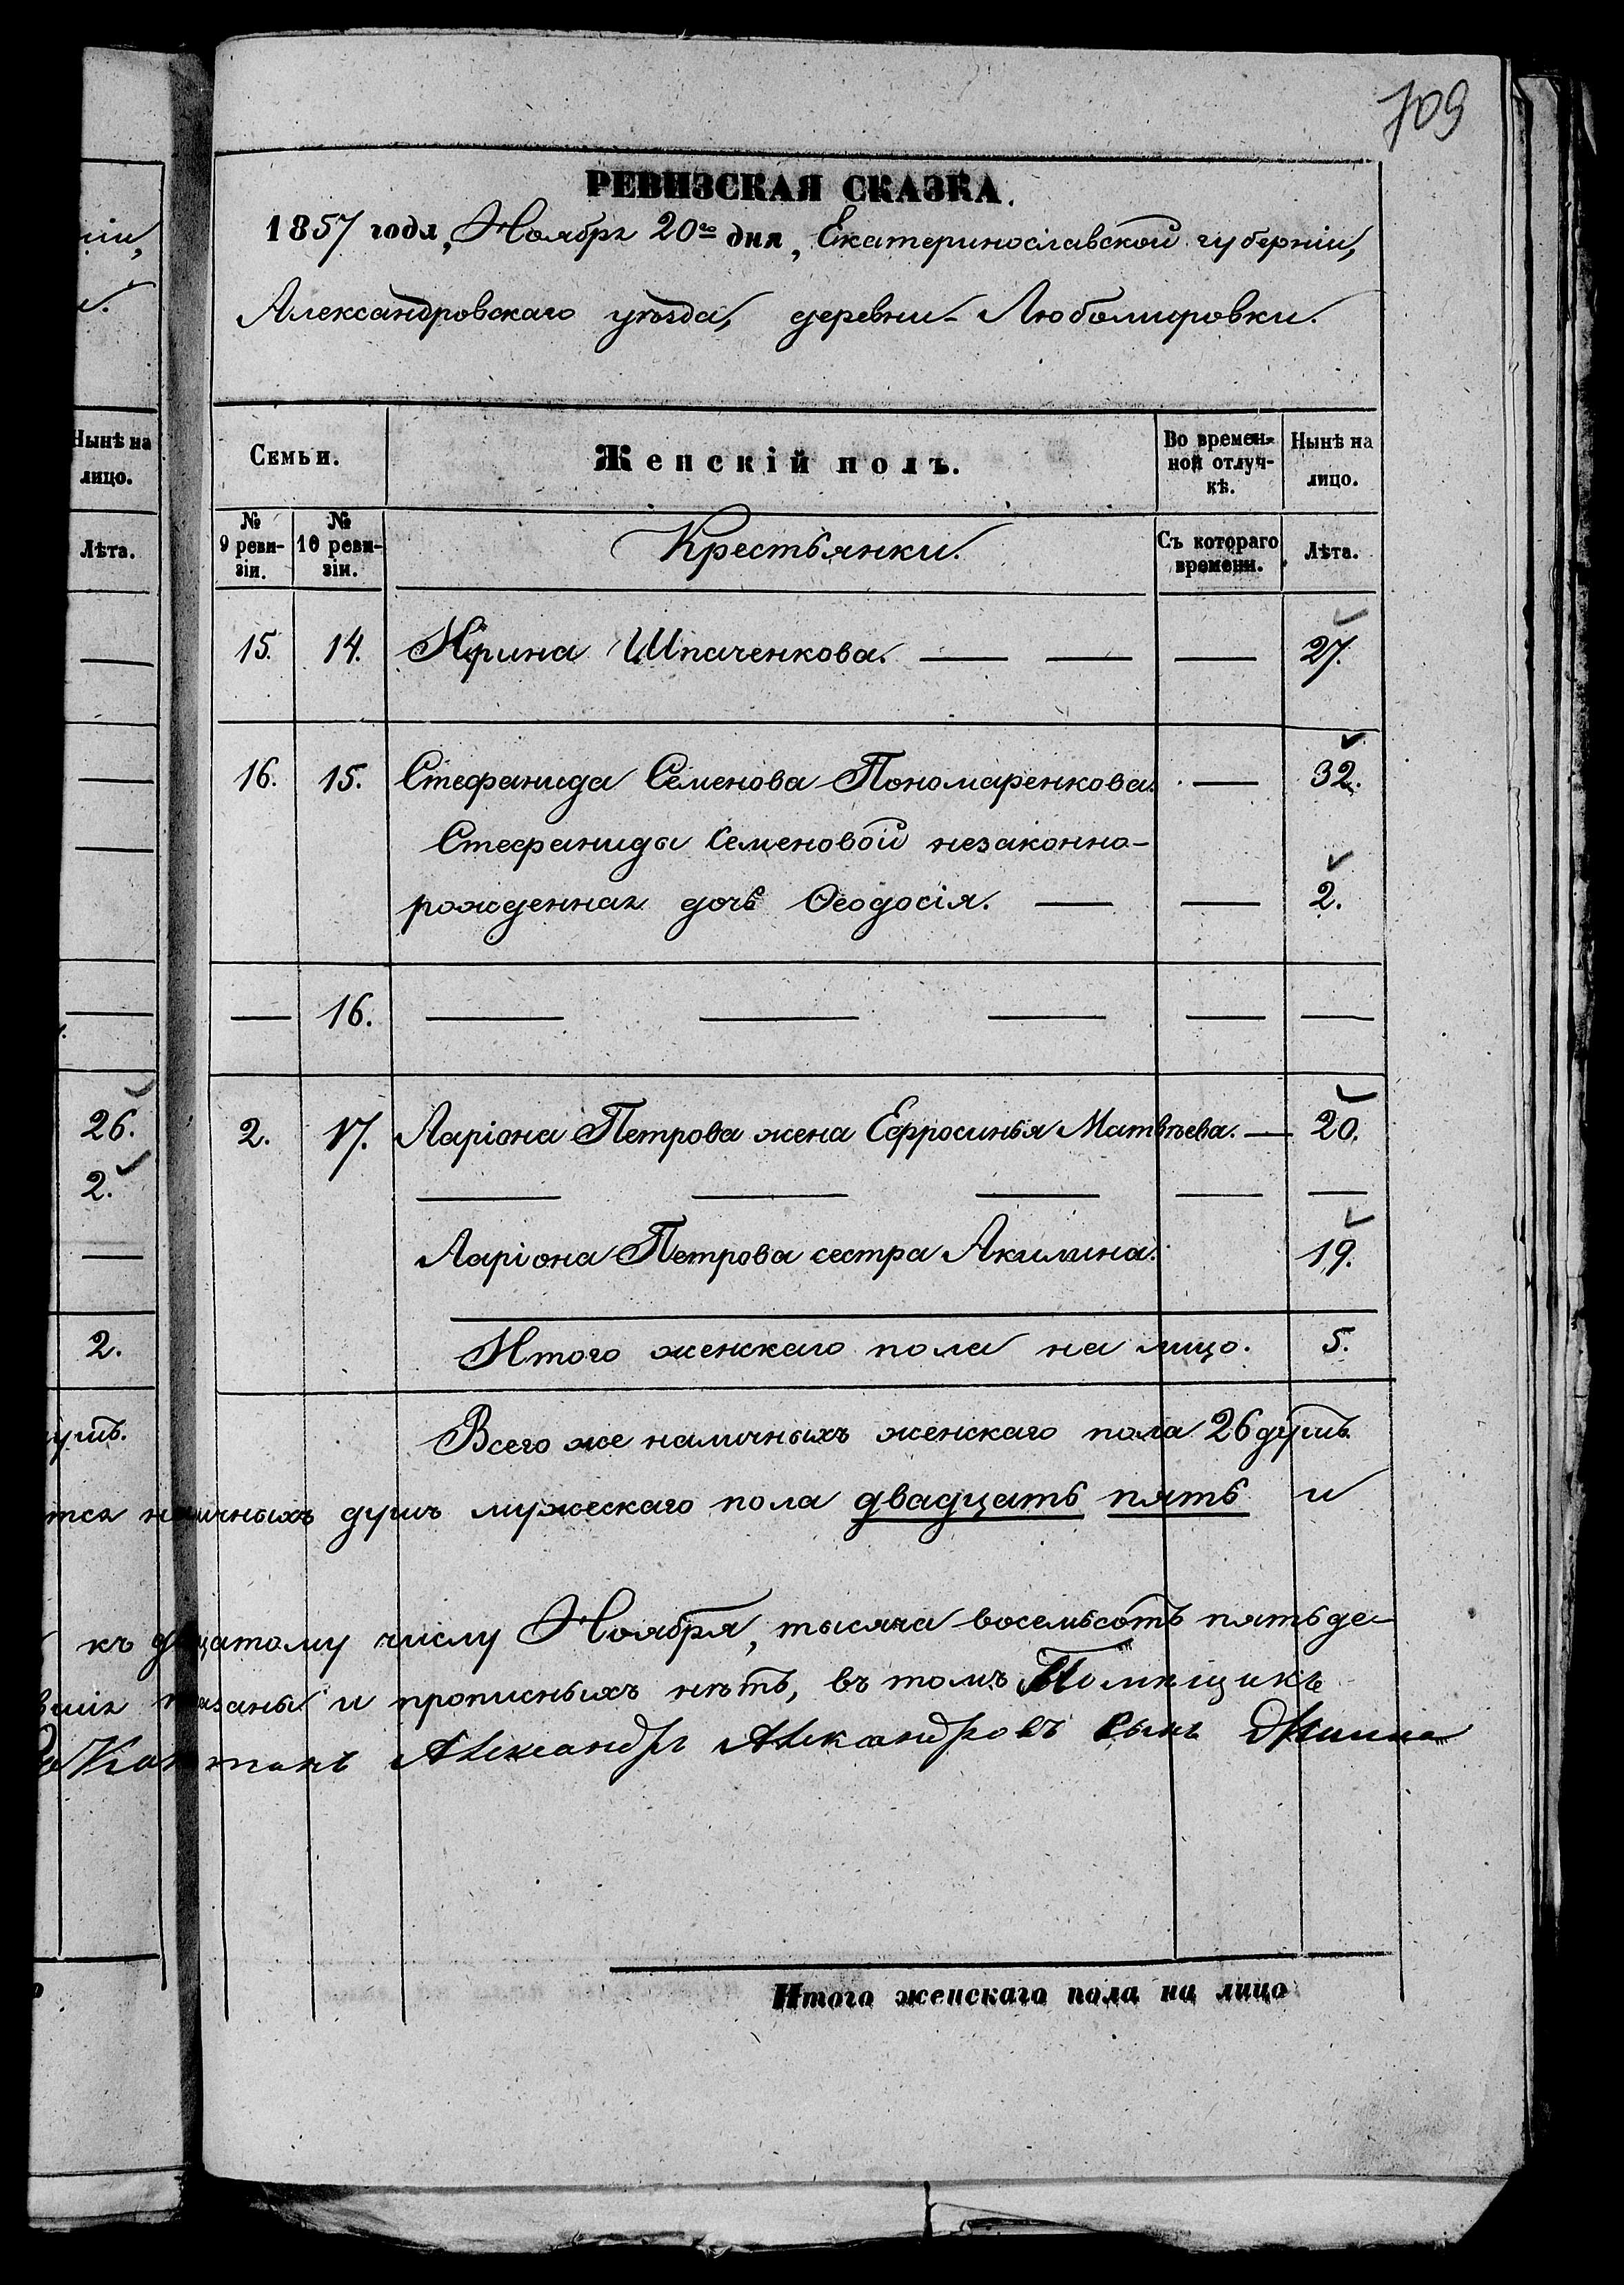 709
РЕВИЗСКАЯ СКАЗКА.
1857 года, Ноября 20го дня, Екатеринославской губерніи,
Александровскаго уѣзда, деревни Любомировки.
Семьи.
Женскій полъ.
Во времен-
ной отлуч-
кѣ.
Нынѣ на
лицо.
№
9 реви-
зіи.
№
10 реви-
зіи.
Крестьянки.
Съ котораго
времени.
Лѣта.
15. 14. Ирина Шпаченкова. 27.
16. 15. Стефанида Семенова Пономаренкова. 32.
Стефаниды Семеновой незаконно-
рожденная дочь Ѳеодосія. 2.
16.
2. 17. Ларіона Петрова жена Ефросинья Матвѣева. 20.
Ларіона Петрова сестра Акилина. 19.
Итого женскаго пола на лицо. 5.
Всего же наличныхъ женскаго пола 26 душъ.
тся наличныхъ душъ мужескаго пола двадцать пять и
къ двадцатому числу Ноября, тысяча восемьсотъ пятьде-
и прописныхъ нѣтъ, въ томъ Помѣщикъ
Александръ Александровъ Сынъ
Итого женскаго пола на лицо
ніи,
Нынѣ на
лицо.
Лѣта.
26.
2.
2.
душъ.